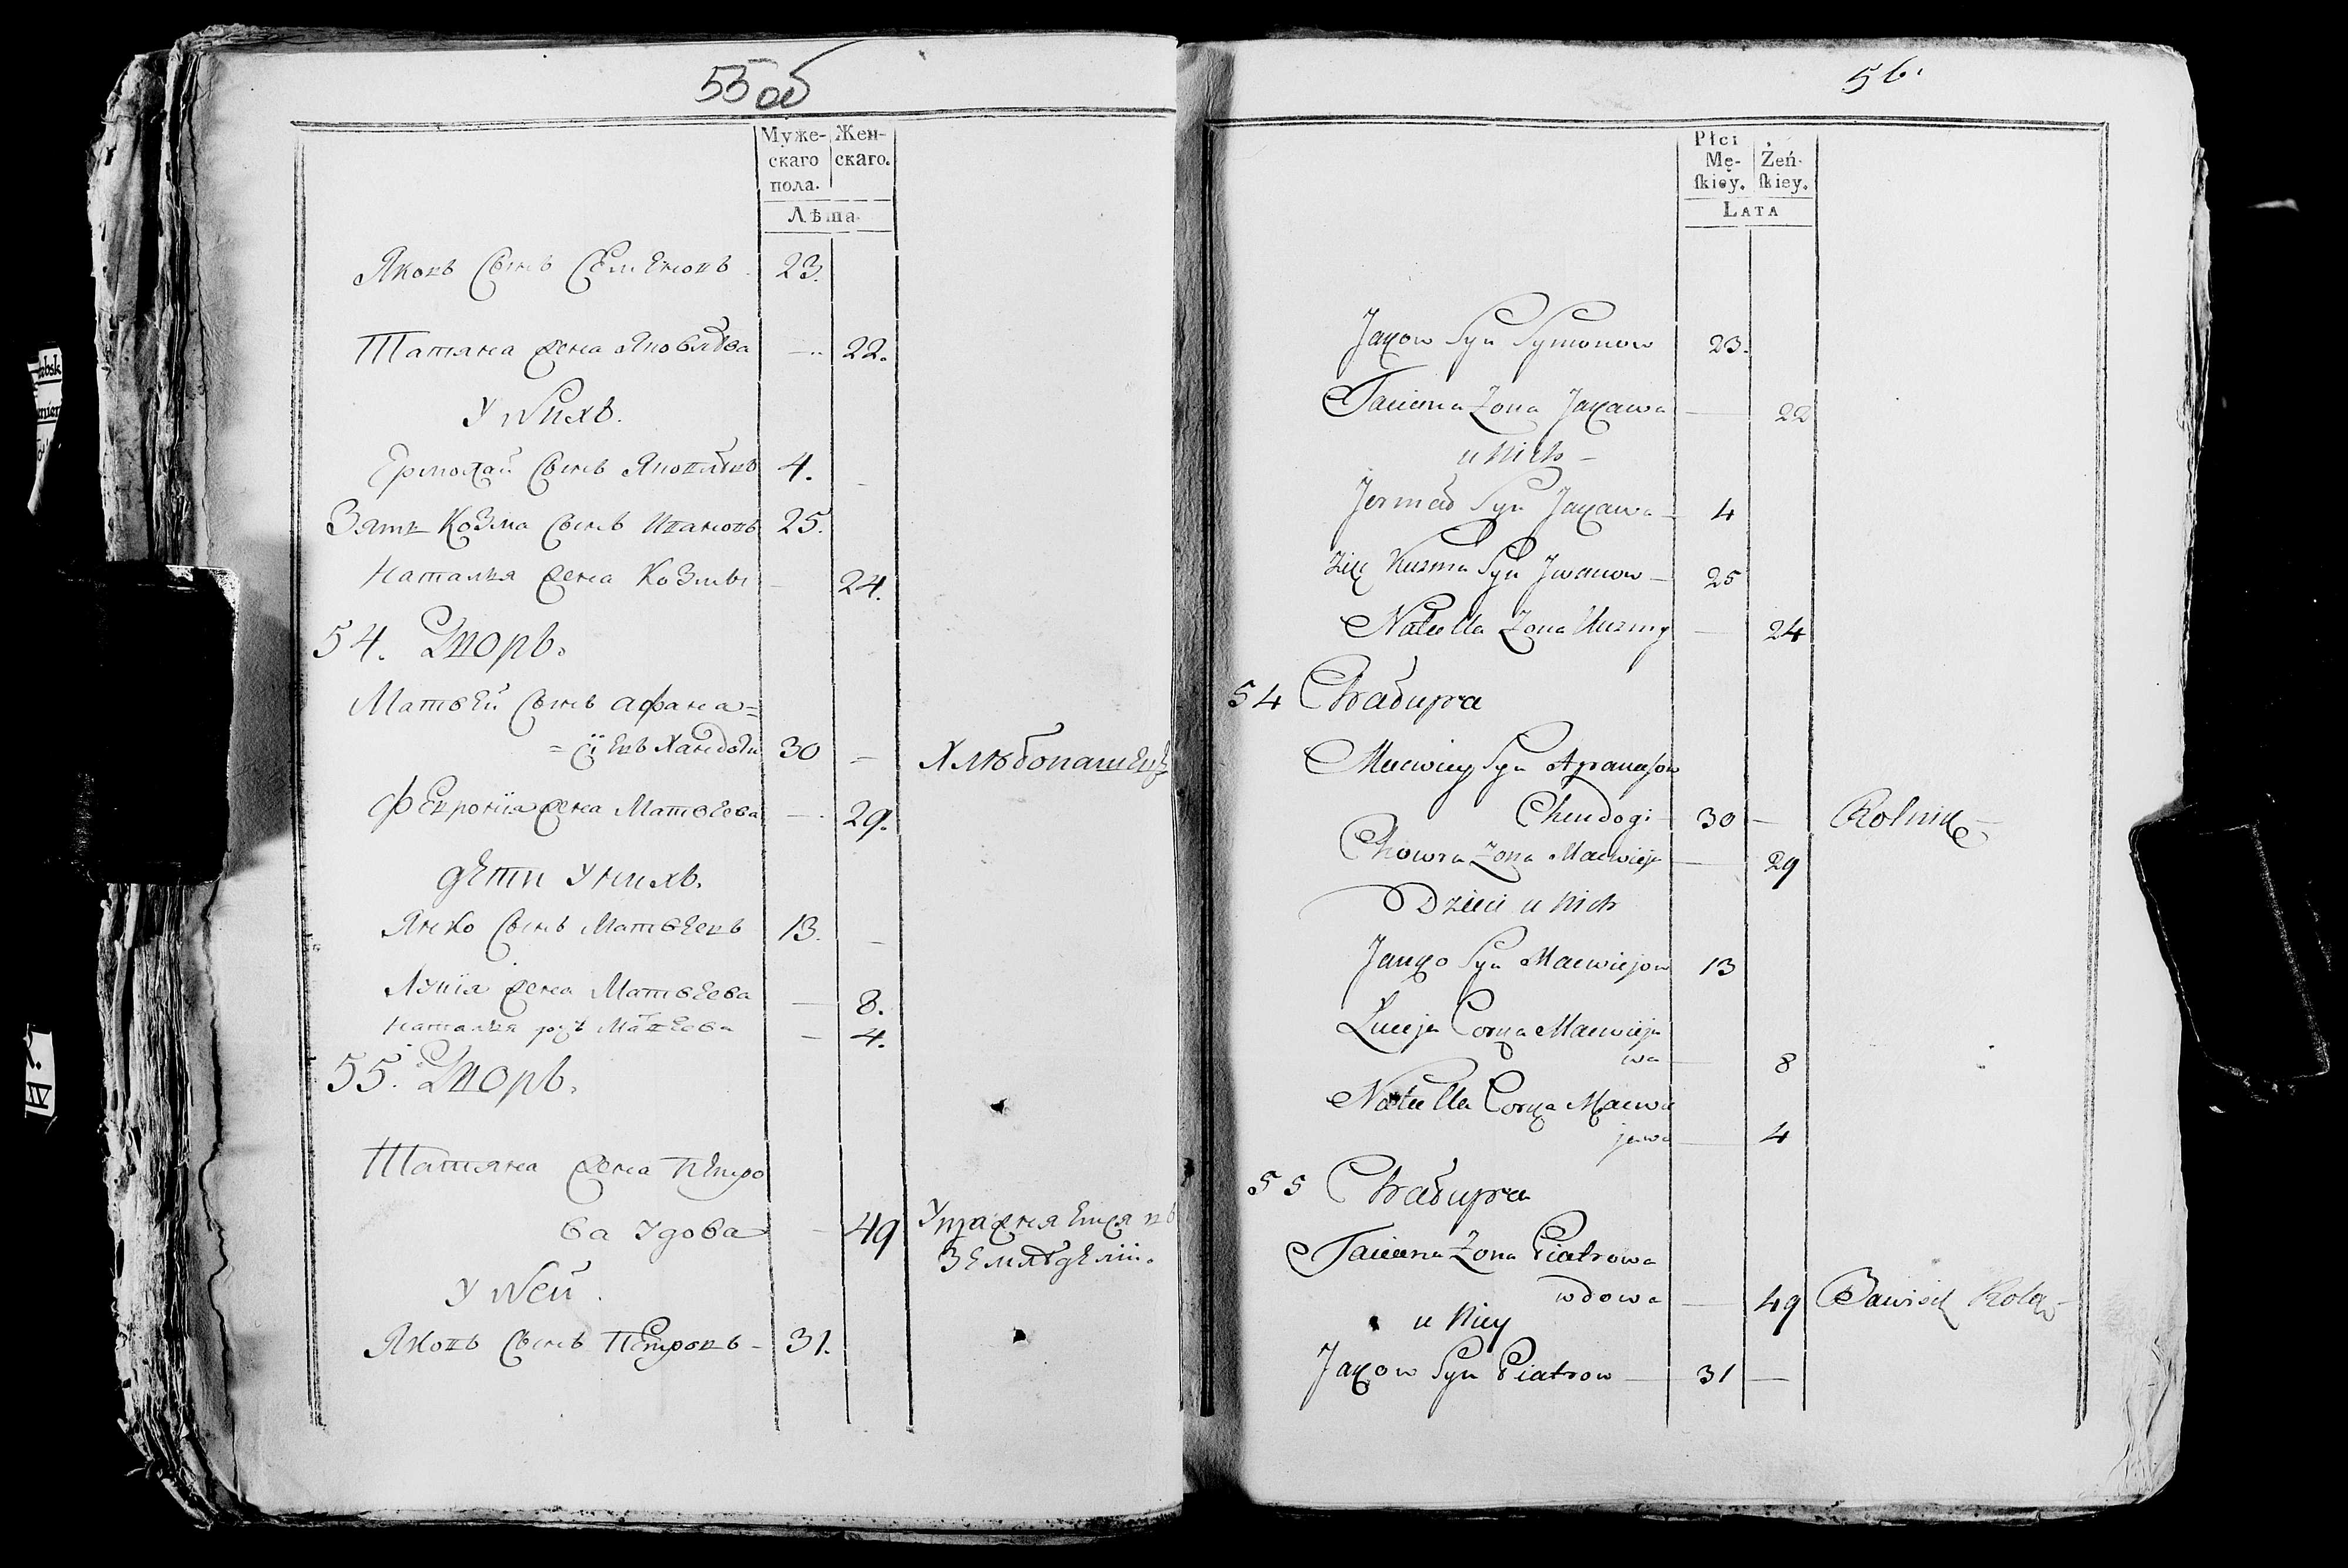 55 об
Муже-
скаго
пола.
Жен-
скаго.
Лѣта.
Яковъ Сынъ Семеновъ 23.
Татяна жена Яковлѣва — 22.
У Нихъ.
Ермолай Сынъ Яковлѣвъ 4.
Зять Козма Сынъ Ивановъ 25.
Наталия жена Козмы — 24.
54. Дворъ.
Матвей Сынъ Афана=
=сіевъ 30 — Хлѣбопашецъ
Феврония жена Матвеева — 29.
дети У нихъ.
Янко Сынъ Матвеевъ 13. —
Луція Матвеева — 8.
Наталия Матвеева — 4.
55. Дворъ.
Татяна жена Петро
ва Удова — 49 Упражняется въ
Земледеліи.
У Ней.
Яковъ Сынъ Петровъ - 31.
56.
Płci
Mę-
ſkiey.
Żeń-
ſkiey.
LATA
Jakow Syn Symonow 23.
Taciana Zona Jakawa — 22
u Nich —
Jermał Syn Jakawa 4
Zięć Kuzma Syn Jwanow — 25
Natalla Zona Kuzmy — 24
54 Chałupa
Maciwiey Syn Apanasow
Chendogi 30 — Rolnik —
Chowra Zona Maciwieja — 29
Dzieci u Nich
Janko Syn Maciwiejow 13
Łucija Corka Maciwieja
wa — 8
Natalla Corka Maciwie
jawa — 4
55 Chałupa
Taciana Zona Piatrowa
wdowa — 49 Bawisię Rolą —
u Niey
Jakow Syn Piatrow — 31 —